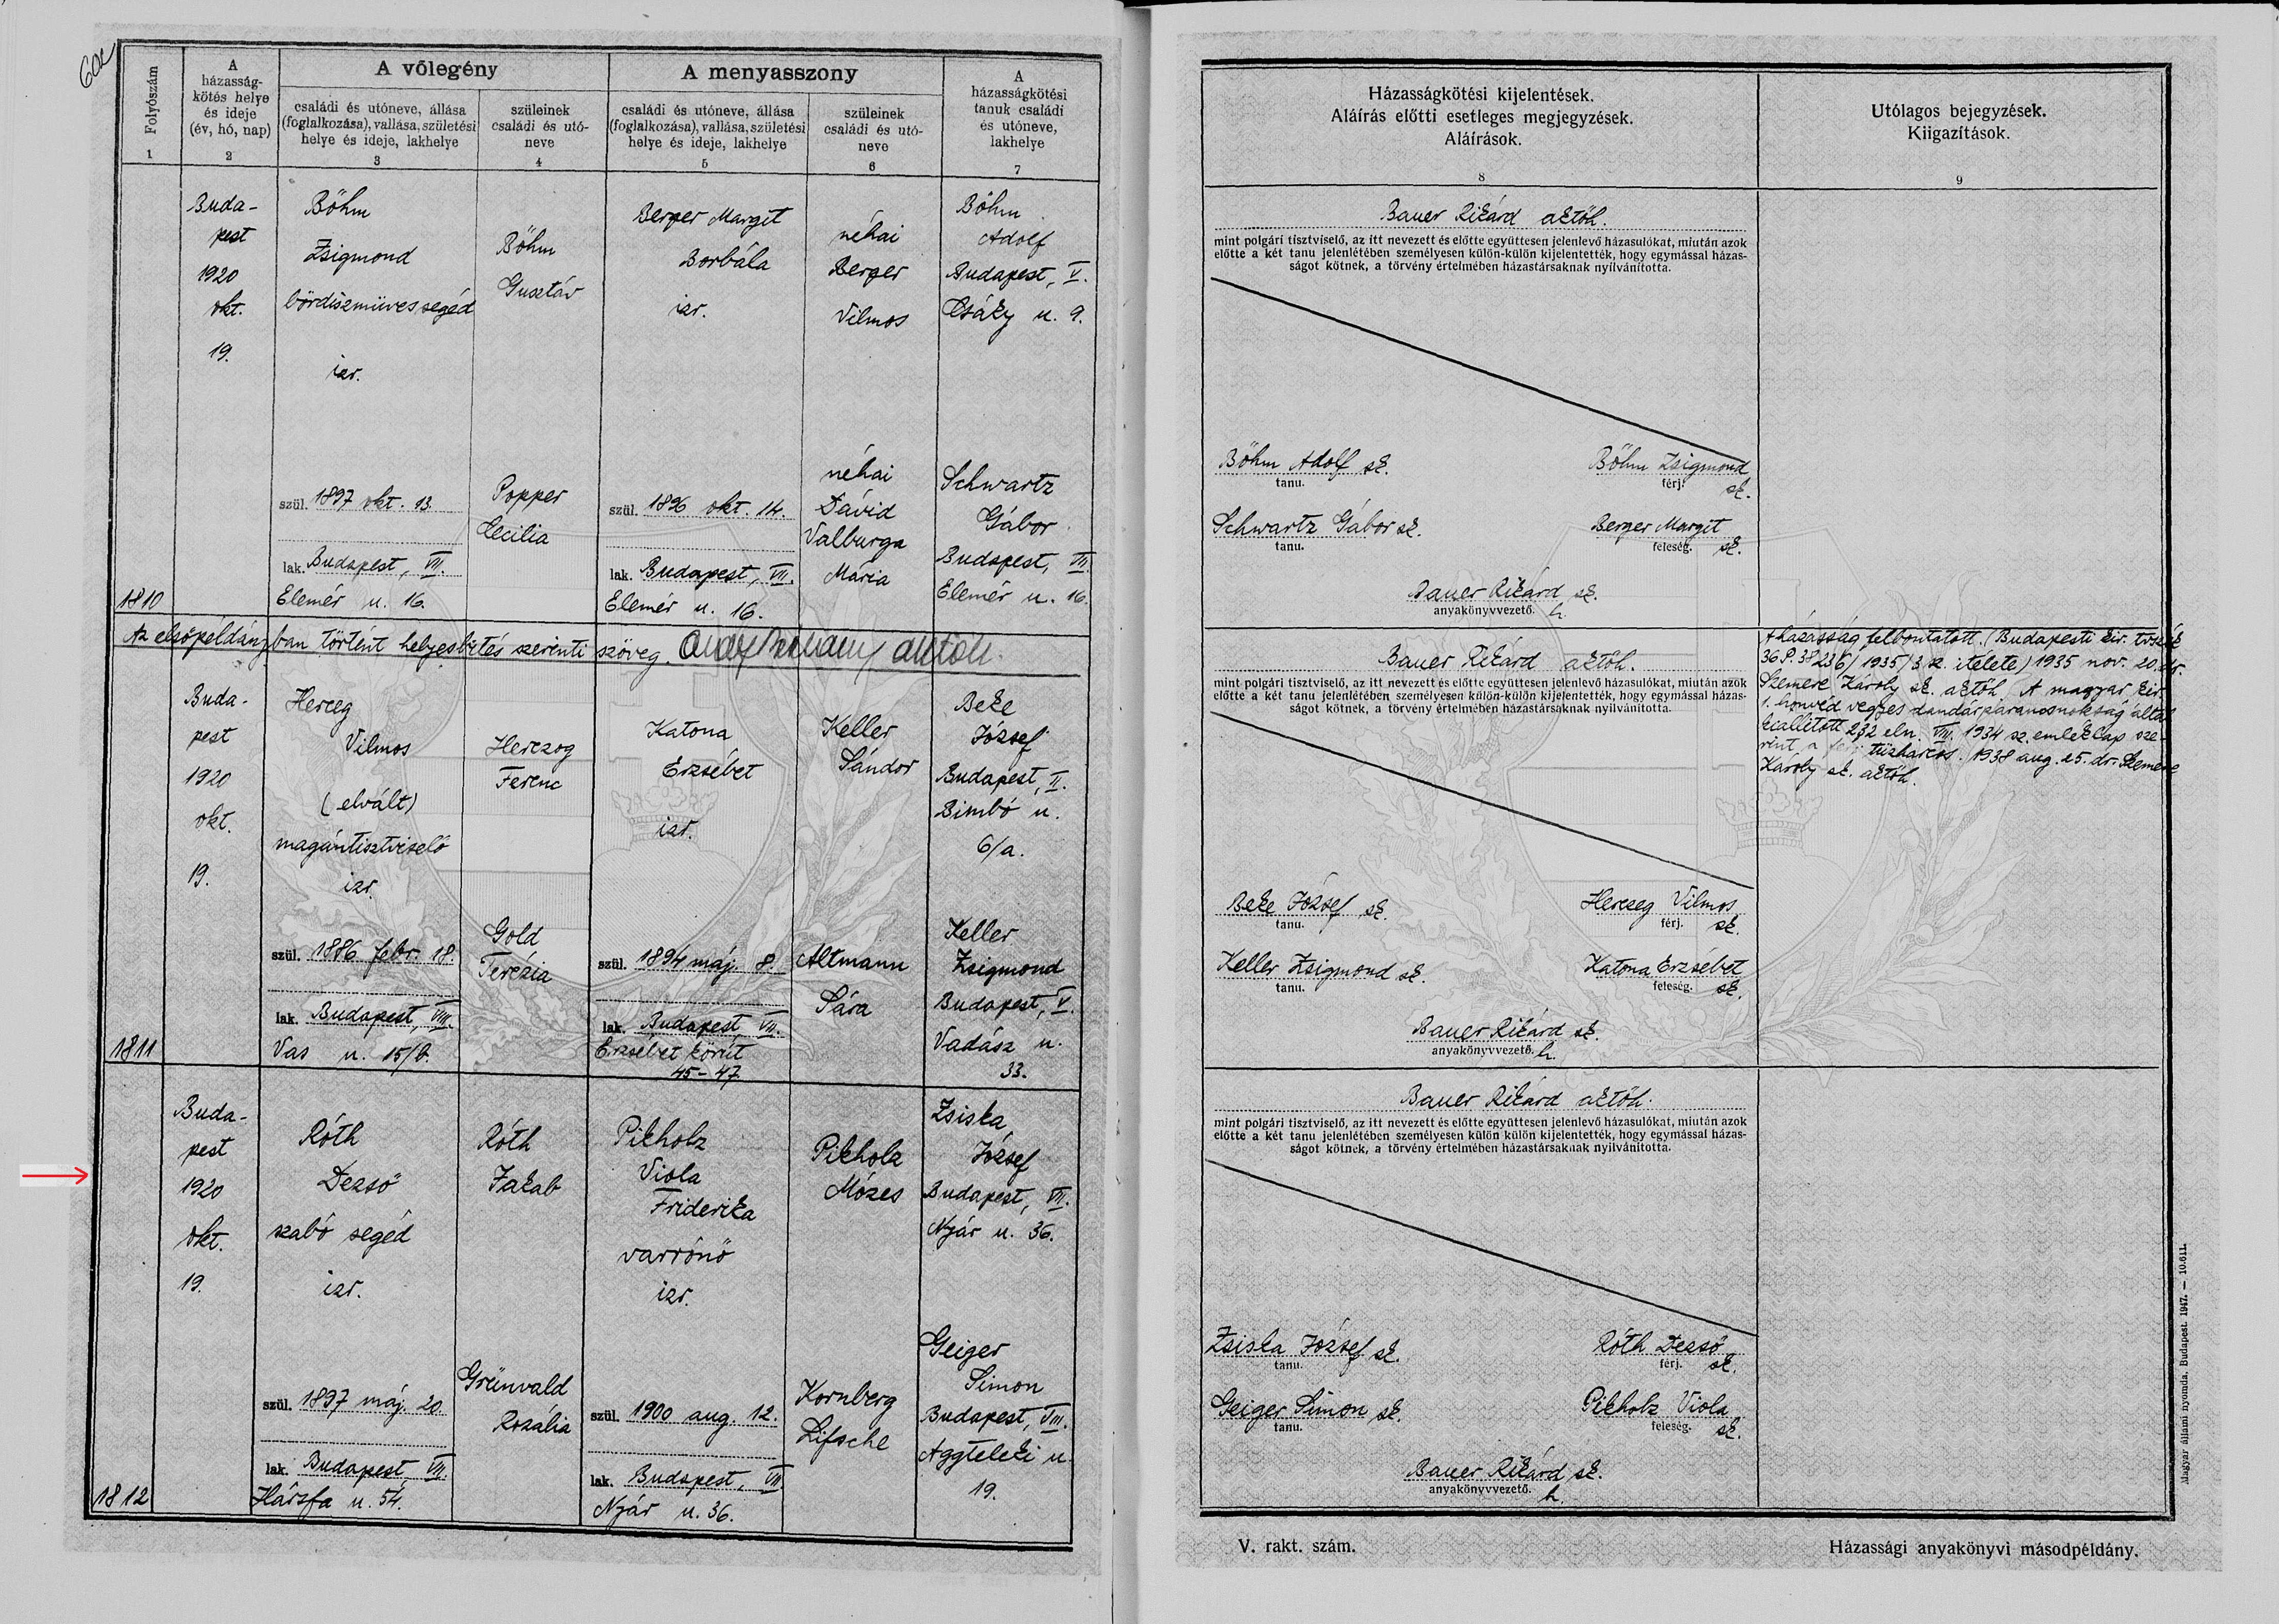 60
Folyószám
1
A
házasság-
kötés helye
és ideje
(év, hó, nap)
2
A vőlegény
családi és utóneve, állása
(foglalkozása), vallása, születési
helye és ideje, lakhelye
3
szüleinek
családi és utó-
neve
4
A menyasszony
családi és utóneve, állása
(foglalkozása), vallása, születési
helye és ideje, lakhelye
5
szüleinek
családi és utó-
neve
6
A
házasságkötési
tanuk családi
és utóneve,
lakhelye
7
Házasságkötési kijelentések.
Aláírás előtti esetleges megjegyzések.
Aláírások.
8
Utólagos bejegyzések.
Kiigazítások.
9
1810
Buda-
pest
1920
okt.
19.
Böhm
Zsigmond
bördiszmüves segéd
izr.
szül. 1897 okt. 13.
lak. Budapest, VII.
Elemér u. 16.
Böhm
Gusztáv
Popper
Cecilia
Berger Margit
Borbála
izr.
szül. 1896 okt. 14.
lak. Budapest, VII.
Elemér u. 16.
néhai
Berger
Vilmos
néhai
Dávid
Valburga
Mária
Böhm
Adolf
Budapest, V.
Csáky u. 9.
Schwartz
Gábor
Budapest, VII.
Elemér u. 16.
Bauer Rikárd aktőh.
mint polgári tisztviselő, az itt nevezett és előtte együttesen jelenlevő házasulókat, miután azok
előtte a két tanu jelenlétében személyesen külön-külön kijelentették, hogy egymással házas-
ságot kötnek, a törvény értelmében házastársaknak nyilvánította.
Böhm Adolf sk.
tanu.
Böhm Zsigmond
férj. sk.
Schwartz Gábor sk.
tanu.
Berger Margit
feleség. sk.
Bauer Rikárd sk.
anyakönyvvezető. h.
Az elsőpéldányban történt helyesbítés szerinti szöveg.
1811
Buda-
pest
1920
okt.
19.
Herceg
Vilmos
(elvált)
magántisztviselő
izr.
szül. 1886 febr. 18.
lak. Budapest, VIII.
Vas u. 15/b.
Herczog
Ferenc
Gold
Terézia
Katona
Erzsébet
izr.
szül. 1894 máj. 8.
lak. Budapest, VII.
Erzsébet körút
45-47.
Keller
Sándor
Altmann
Sára
Beke
József
Budapest, II.
Bimbó u.
6/a.
Keller
Zsigmond
Budapest, V.
Vadász u.
33.
Bauer Rikárd aktőh.
mint polgári tisztviselő, az itt nevezett és előtte együttesen jelenlevő házasulókat, miután azok
előtte a két tanu jelenlétében személyesen külön-külön kijelentették, hogy egymással házas-
ságot kötnek, a törvény értelmében házastársaknak nyilvánította.
Beke József sk.
tanu.
Herceg Vilmos
férj. sk.
Keller Zsigmond sk.
tanu.
Katona Erzsébet
feleség. sk.
Bauer Rikárd sk.
anyakönyvvezető. h.
A házasság felbontatott. (Budapesti kir. tvszék
36.P. 38236/1935/3 sz. itélete) 1935 nov. 20. dr.
Szemere Károly sk. aktőh. A magyar kir.
1. honvéd vegyes dandárparancsnokság által
kiállitott 232 eln. VIII. 1934 sz. emléklap sze-
rint a férj tűzharcos. 1938 aug. 25. dr. Szemere
Károly sk. aktőh.
1812
Buda-
pest
1920
okt.
19.
Róth
Dezső
szabó segéd
izr.
szül. 1897 máj. 20.
lak. Budapest, VII.
Hársfa u. 54.
Róth
Jakab
Grünvald
Rozália
Pikholz
Viola
Friderika
varrónő
izr.
szül. 1900 aug. 12.
lak. Budapest, VII.
Nyár u. 36.
Pikholz
Mózes
Kornberg
Lifsche
Zsiska
József
Budapest, VII.
Nyár u. 36.
Geiger
Simon
Budapest, VIII.
Aggteleki u.
19.
Bauer Rikárd aktőh.
mint polgári tisztviselő, az itt nevezett és előtte együttesen jelenlevő házasulókat, miután azok
előtte a két tanu jelenlétében személyesen külön külön kijelentették, hogy egymással házas-
ságot kötnek, a törvény értelmében házastársaknak nyilvánította.
Zsiska József sk.
tanu.
Róth Dezső
férj. sk.
Geiger Simon sk.
tanu.
Pikholz Viola
feleség. sk.
Bauer Rikárd sk.
anyakönyvvezető. h.
Magyar állami nyomda, Budapest. 1947. — 10.611.
V. rakt. szám.
Házassági anyakönyvi másodpéldány.